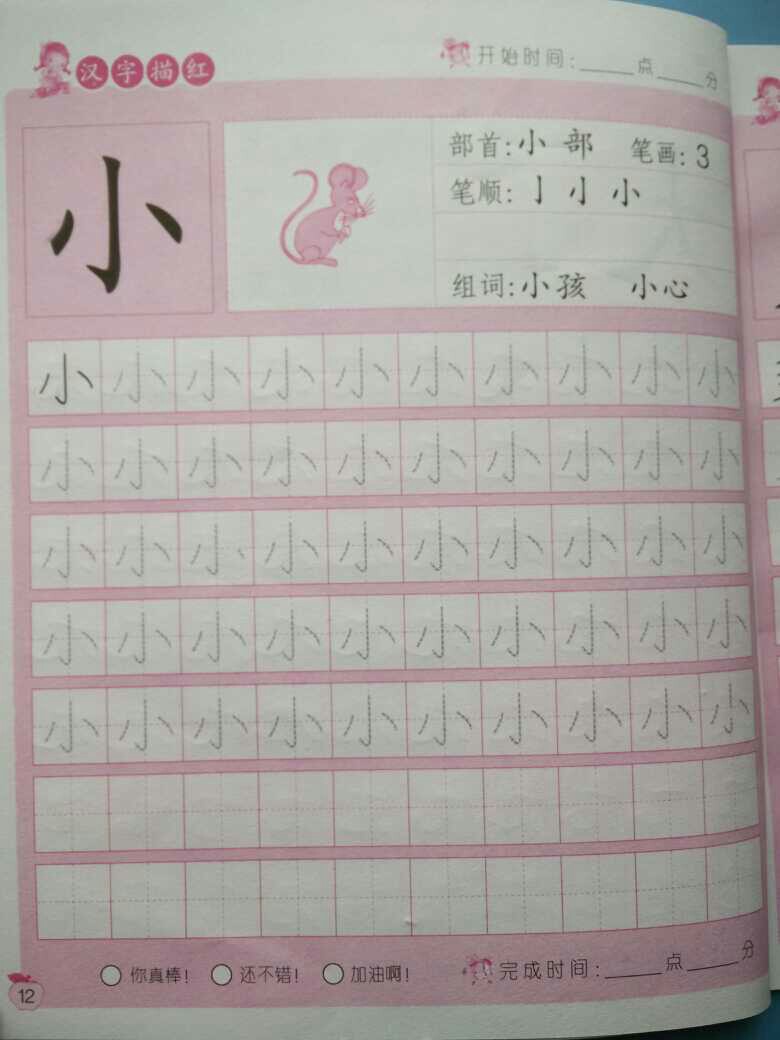 汉字描红
开始时间:_____点_____分
小
部首:小 部 笔画:3
笔顺:亅 小 小
组词:小孩 小心
小 小 小 小 小 小 小 小 小 小
小 小 小 小 小 小 小 小 小 小
小 小 小 小 小 小 小 小 小 小
小 小 小 小 小 小 小 小 小 小
小 小 小 小 小 小 小 小 小 小
你真棒! 还不错! 加油啊! 完成时间:_____点_____分
12